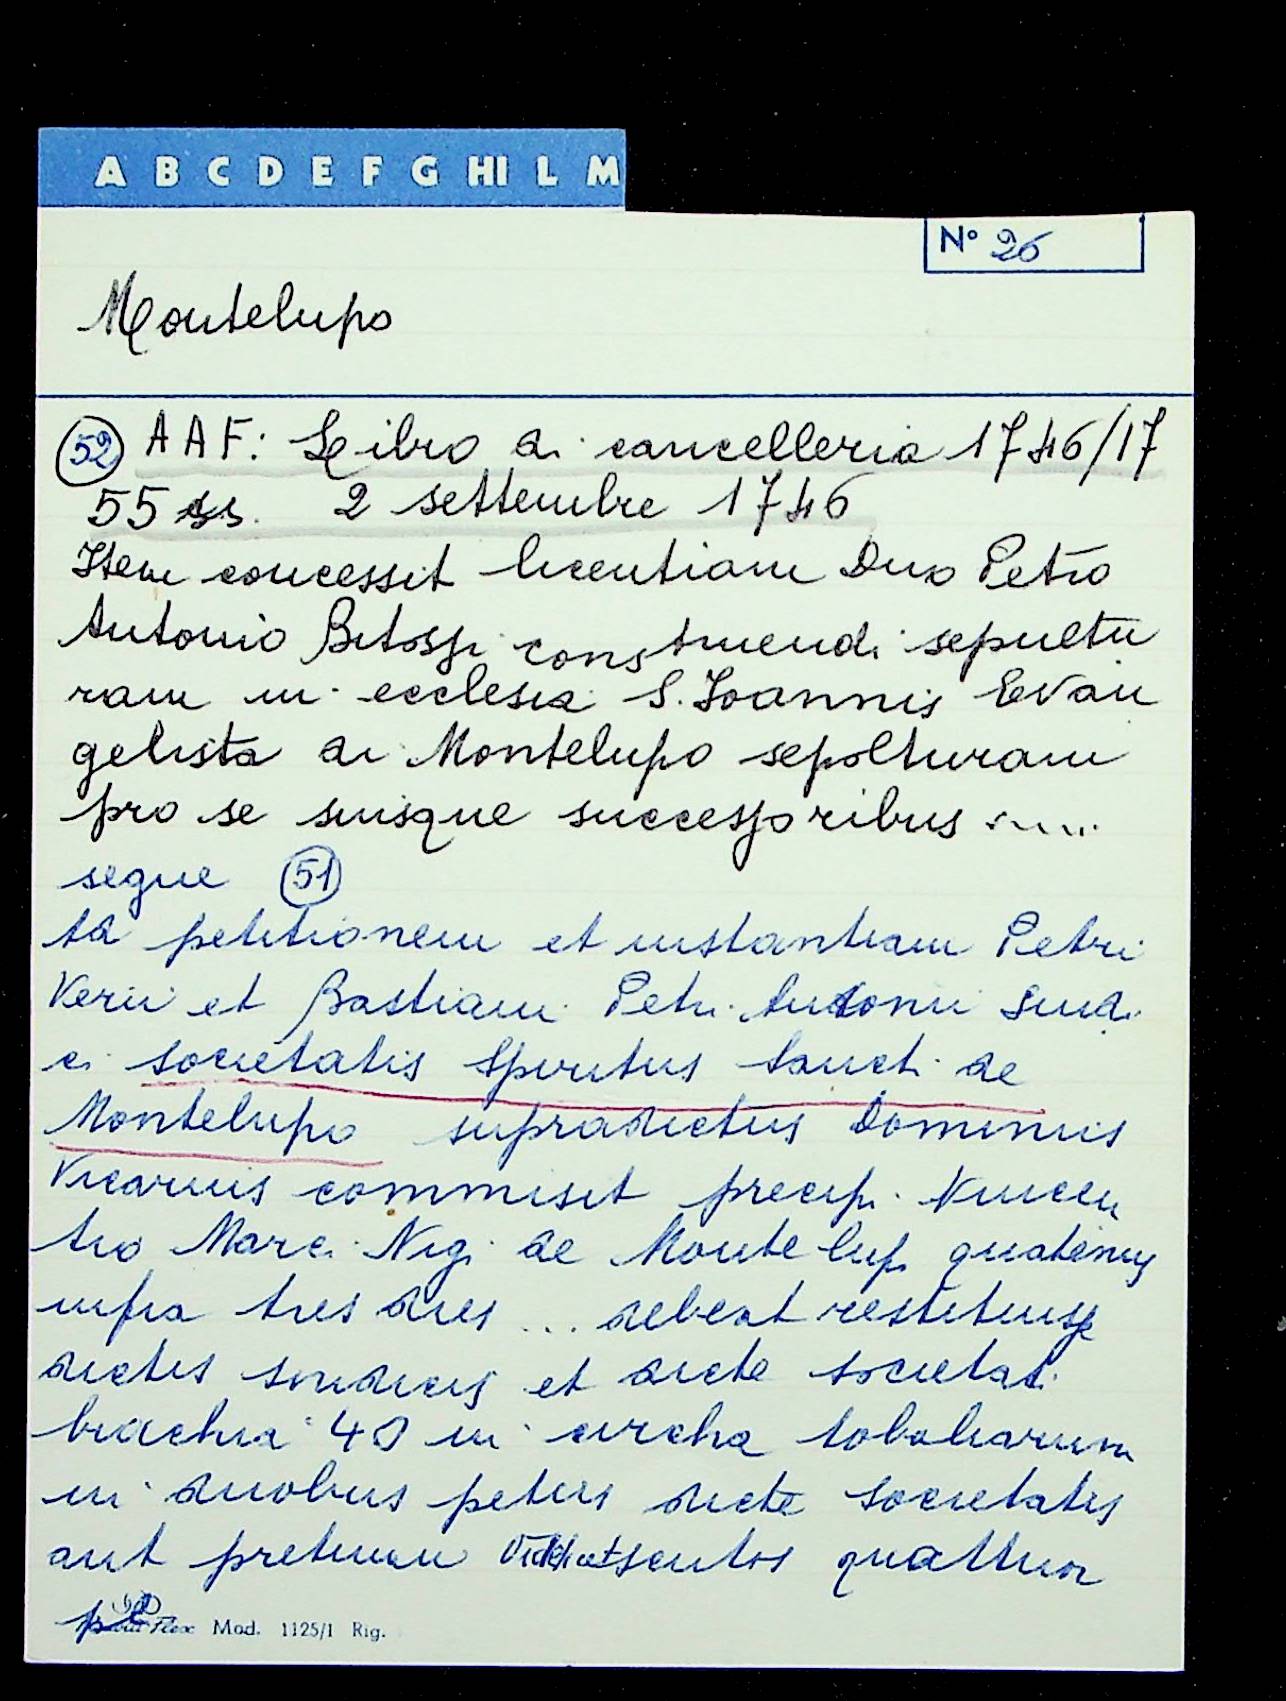 A B C D E F G HI L M
N° 26
Montelupo
52 A A F: Libro di cancelleria 1746/17
55 2 settembre 1746
Item concessit licentiam Dno Petro
Antonio Bitossi construendi sepultu
ram in ecclesia S. Joannis Evan
gelista di Montelupo sepolturam
pro se suisque successoribus .....
segue 51
ad petitionem et instantiam Petri
Verii et Bastiani Petri Antonii Sind
ci societatis Spiritus Sancti de
Montelupo supradictus Dominus
Vicarius commisit precip. Vincen
tio Marci Nigi de Monte lup. quatenus
infra tres dies ... debeat restituisse
dictis sindicis et dicte societati
brachia 40 in circha tobaliarum
in duobus petiis dicte societatis
aut pretium scutos quattuor
Flex Mod. 1125/1 Rig.